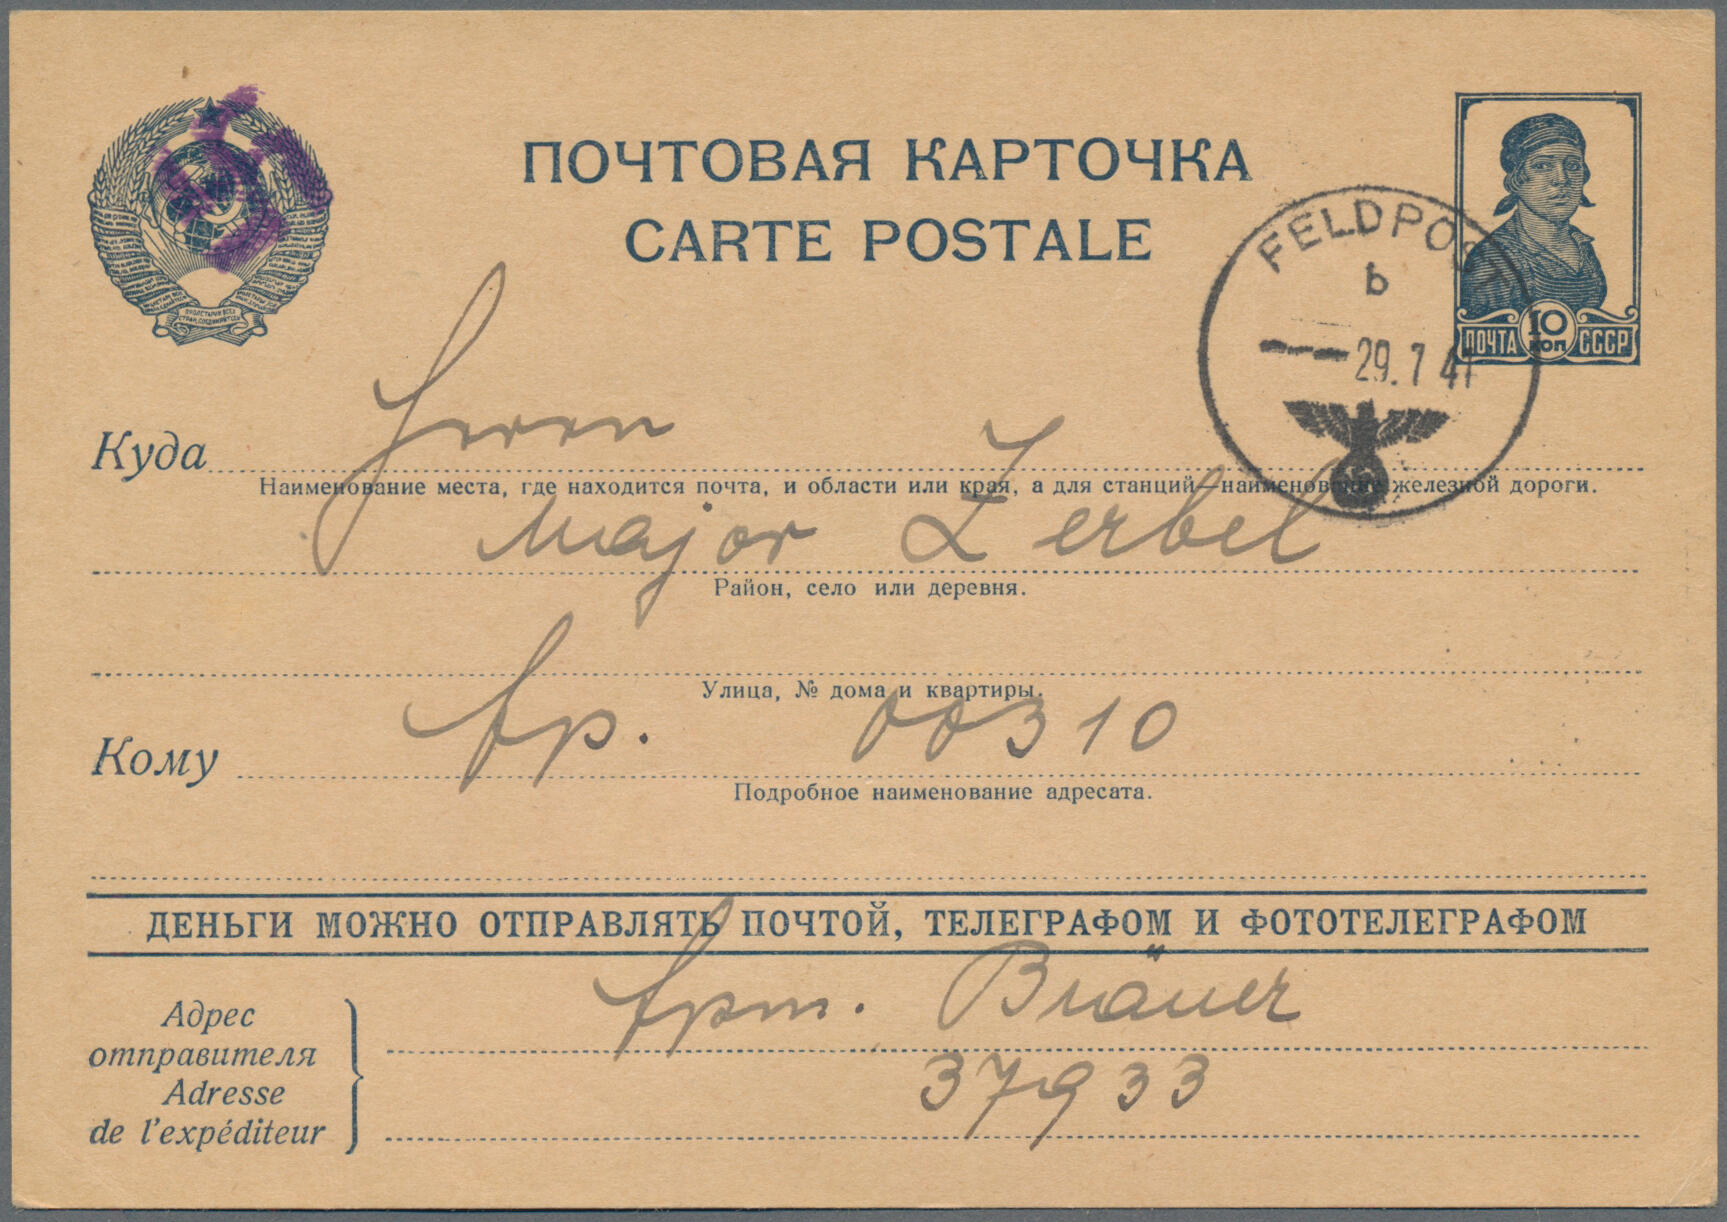 ПОЧТОВАЯ КАРТОЧКА
CARTE POSTALE
FELDPOST
b
29.7 41
10
КОП
ПОЧТА СССР
Herrn
Куда
Наименование места, где находится почта, и области или края, а для станций—наименование железной дороги.
Major Zerbel
Район, село или деревня.
Улица, № дома и квартиры.
Fp. 00310
Кому
Подробное наименование адресата.
ДЕНЬГИ МОЖНО ОТПРАВЛЯТЬ ПОЧТОЙ, ТЕЛЕГРАФОМ И ФОТОТЕЛЕГРАФОМ
Адрес
отправителя
Adresse
de l'expéditeur
Bräuer
37933